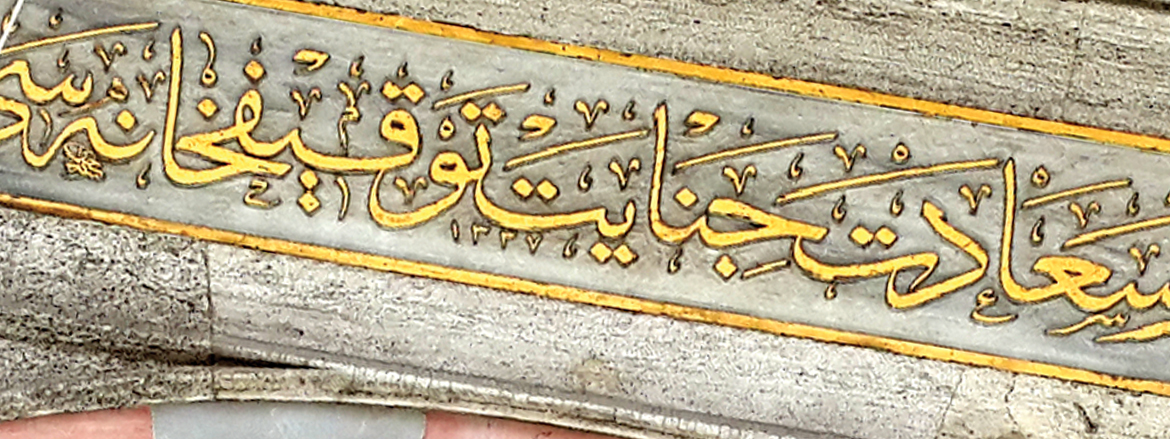 سعادت جنايت توقيفخانه سى
١٣٣٧